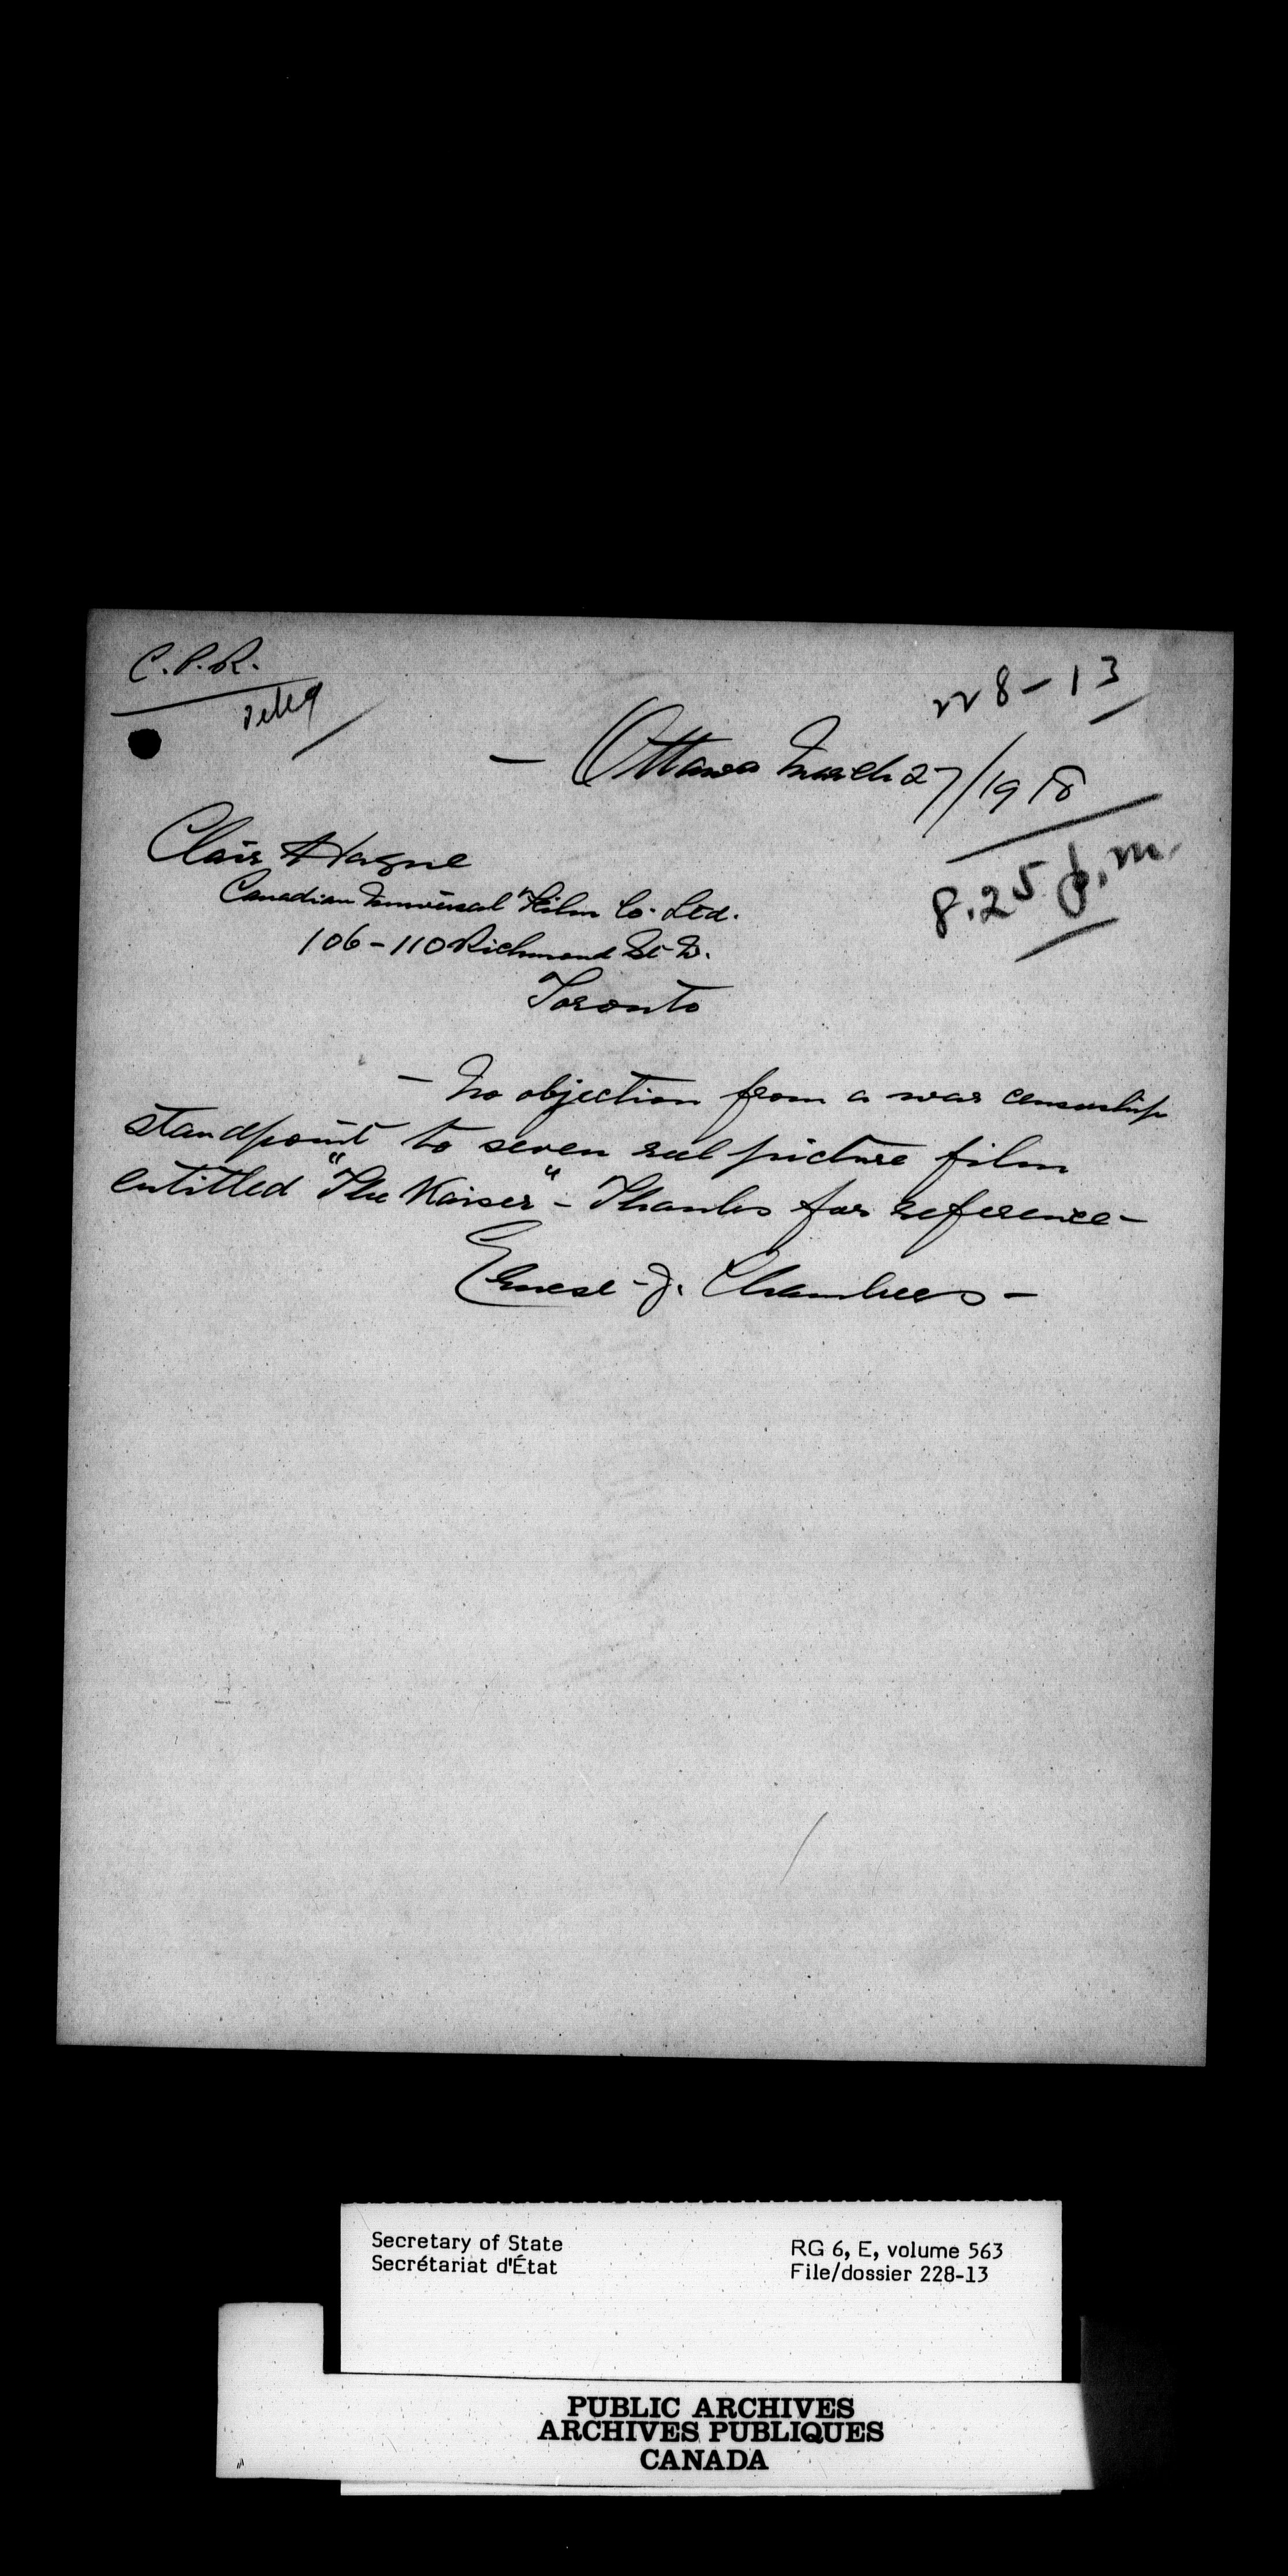 C.P.R.
228-13
Ottawa March 27/1918
8.25 p.m.
Clair Hague
Canadian Universal Film Co. Ltd.
106-110 Richmond St. W.
Toronto
- No objection from a war censorship
standpoint to seven reel picture film
entitled "The Kaiser" - Thanks for reference -
Ernest J. Chambers -
Secretary of State
Secrétariat d'État
RG 6, E, volume 563
File/dossier 228-13
PUBLIC ARCHIVES
ARCHIVES PUBLIQUES
CANADA